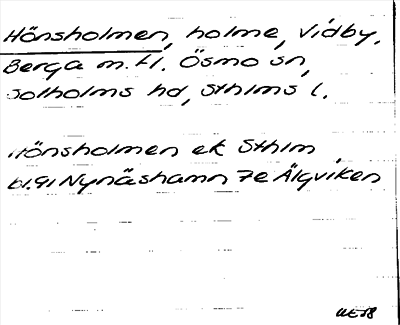 Hönsholmen, holme, Vidby,
Berga m. fl. Ösmo sn,
Sotholms hd, Sthlms l.
Hönsholmen ek Sthlm
bl. 91 Nynäshamn 7e Älgviken